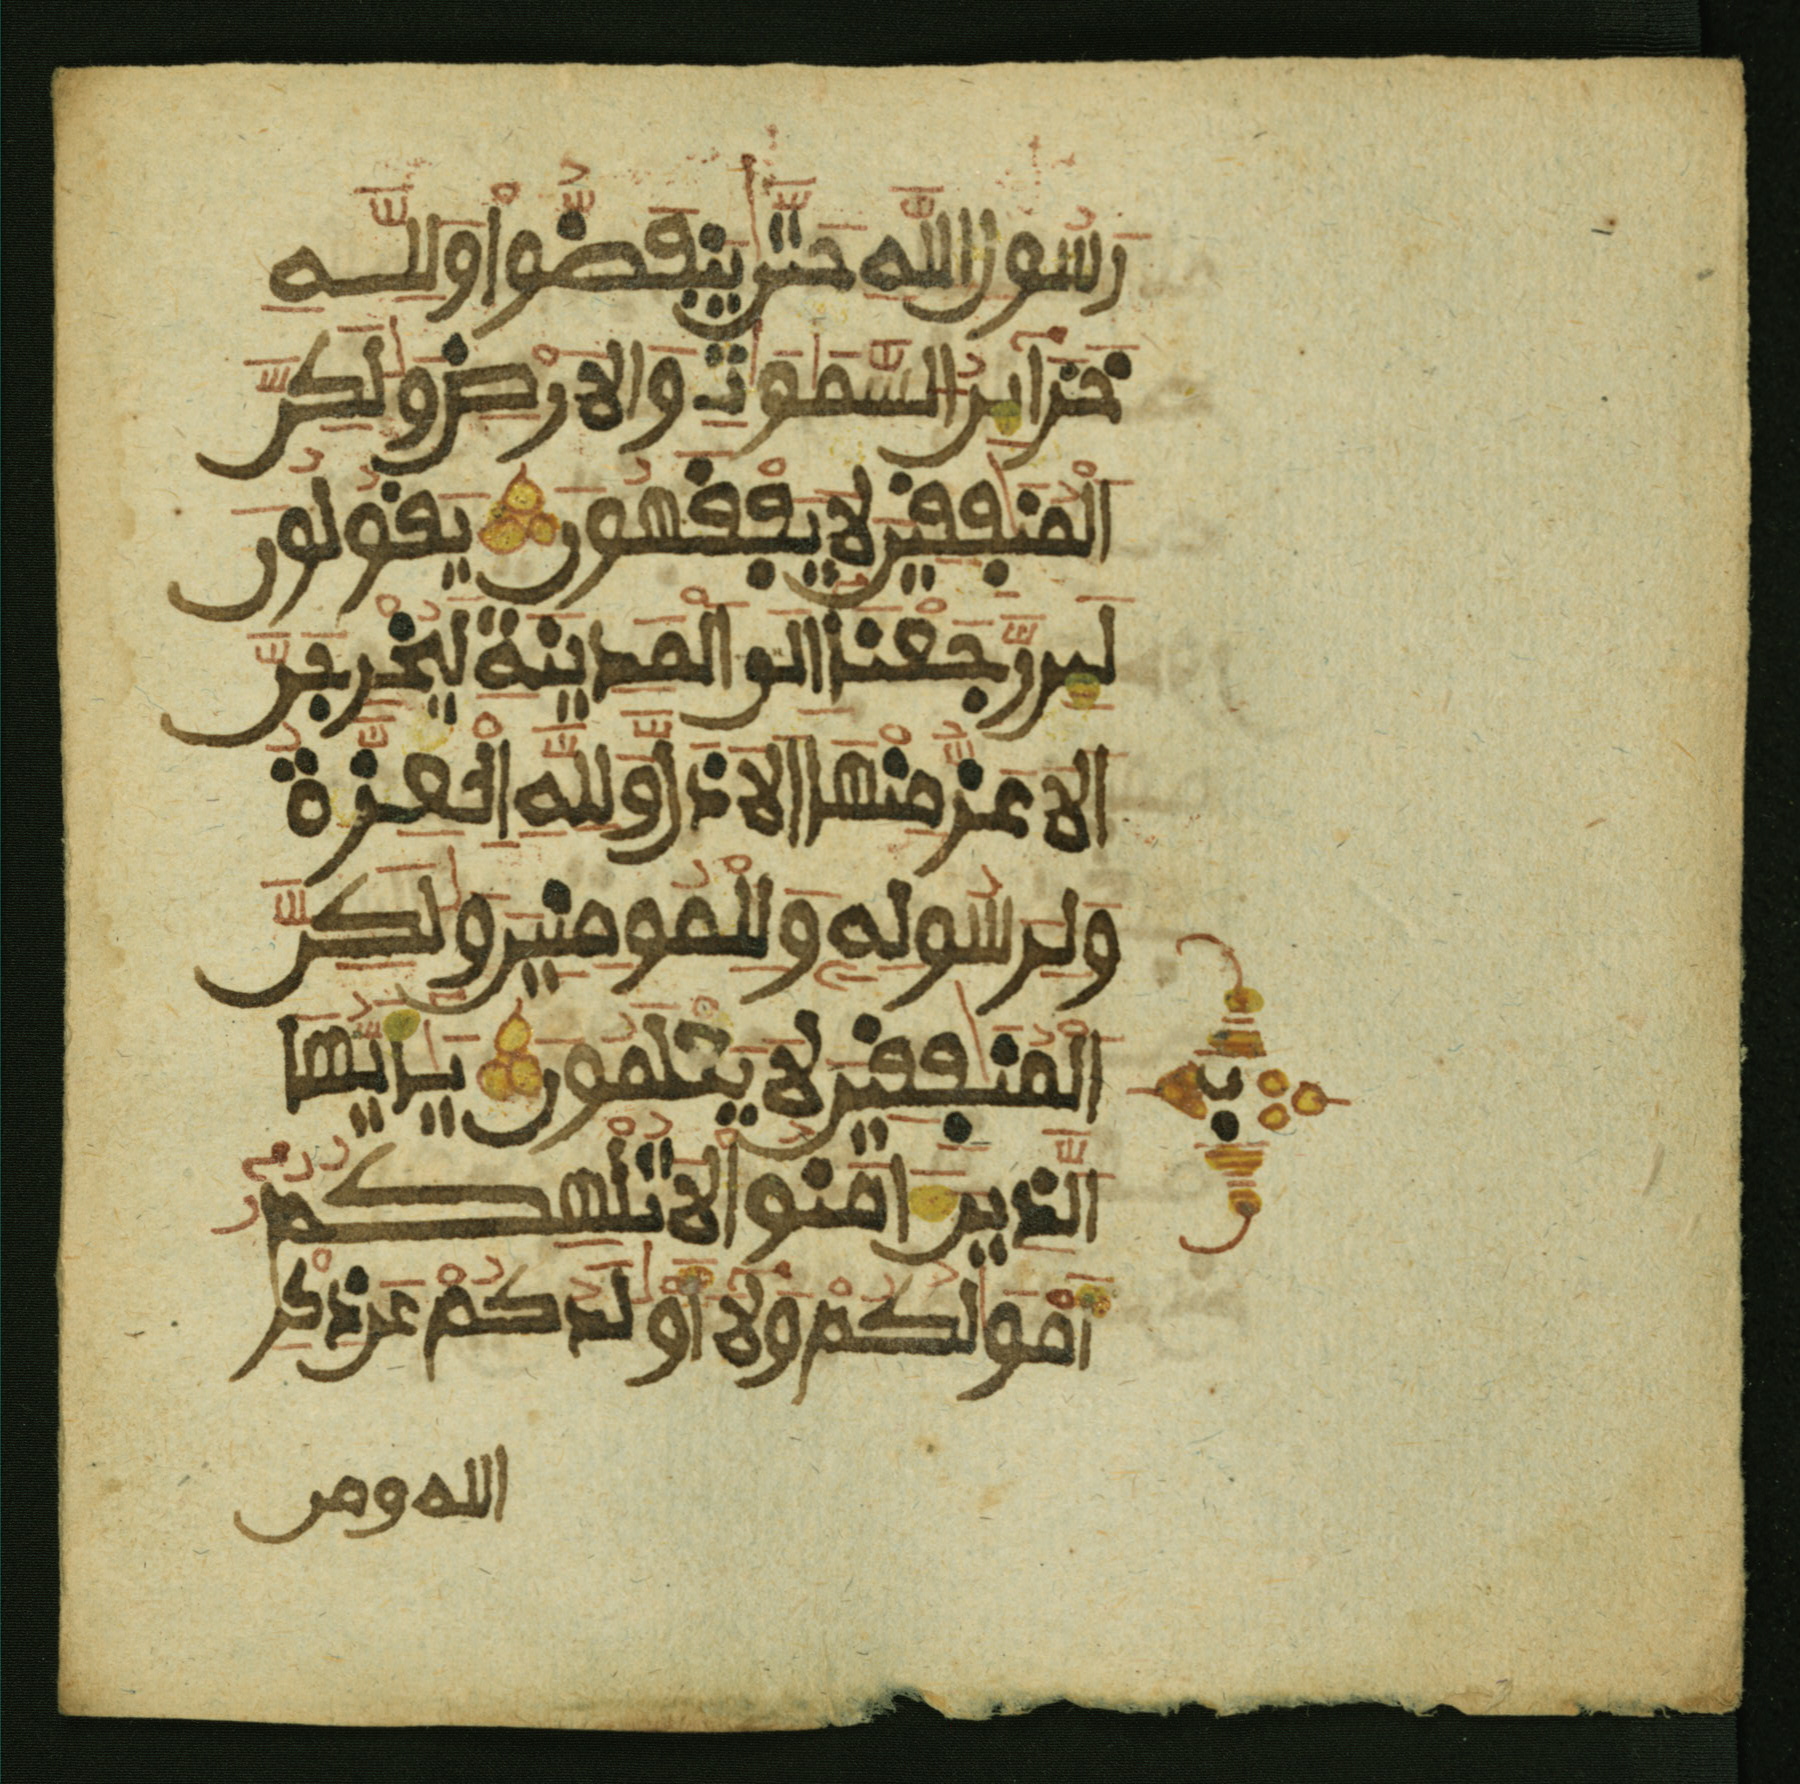 رَسُولِ اللَّهِ حَتَّىٰ يَنفَضُّواْ وَلِلَّهِ
خَزَآئِنُ السَّمَٰوَٰتِ وَالَارْضِ وَلَٰكِنَّ
الْمُنَٰفِقِينَ لَا يَفْقَهُونَ يَقُولُونَ
لَئِن رَّجَعْنَا إِلَى الْمَدِينَةِ لَيُخْرِجَنَّ
الَاعَزُّ مِنْهَا الَاذَلَّ وَلِلَّهِ الْعِزَّةُ
وَلِرَسُولِهِ وَلِلْمُومِنِينَ وَلَٰكِنَّ
الْمُنَٰفِقِينَ لَا يَعْلَمُونَ يَٰأَيُّهَا
الَّذِينَ ءَامَنُوا لَا تُلْهِكُمُ
أَمْوَٰلُكُمْ وَلَا أَوْلَٰدُكُمْ عَن ذِكْرِ
الله ومن